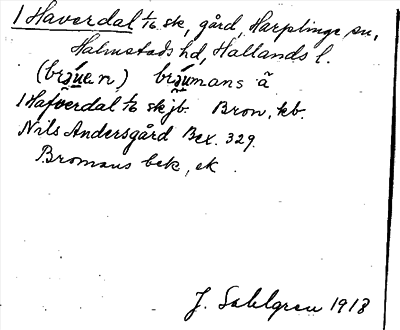 1 Haverdal 1/6 sk, gård, Harplinge sn,
Halmstads hd, Hallands l.
(bräuen) bräumans å
1 Hafverdal 1/6 sk jb. Bron, kb.
Nils Andersgård Bex. 329.
Bromans bek, ek
J. Sahlgren 1918